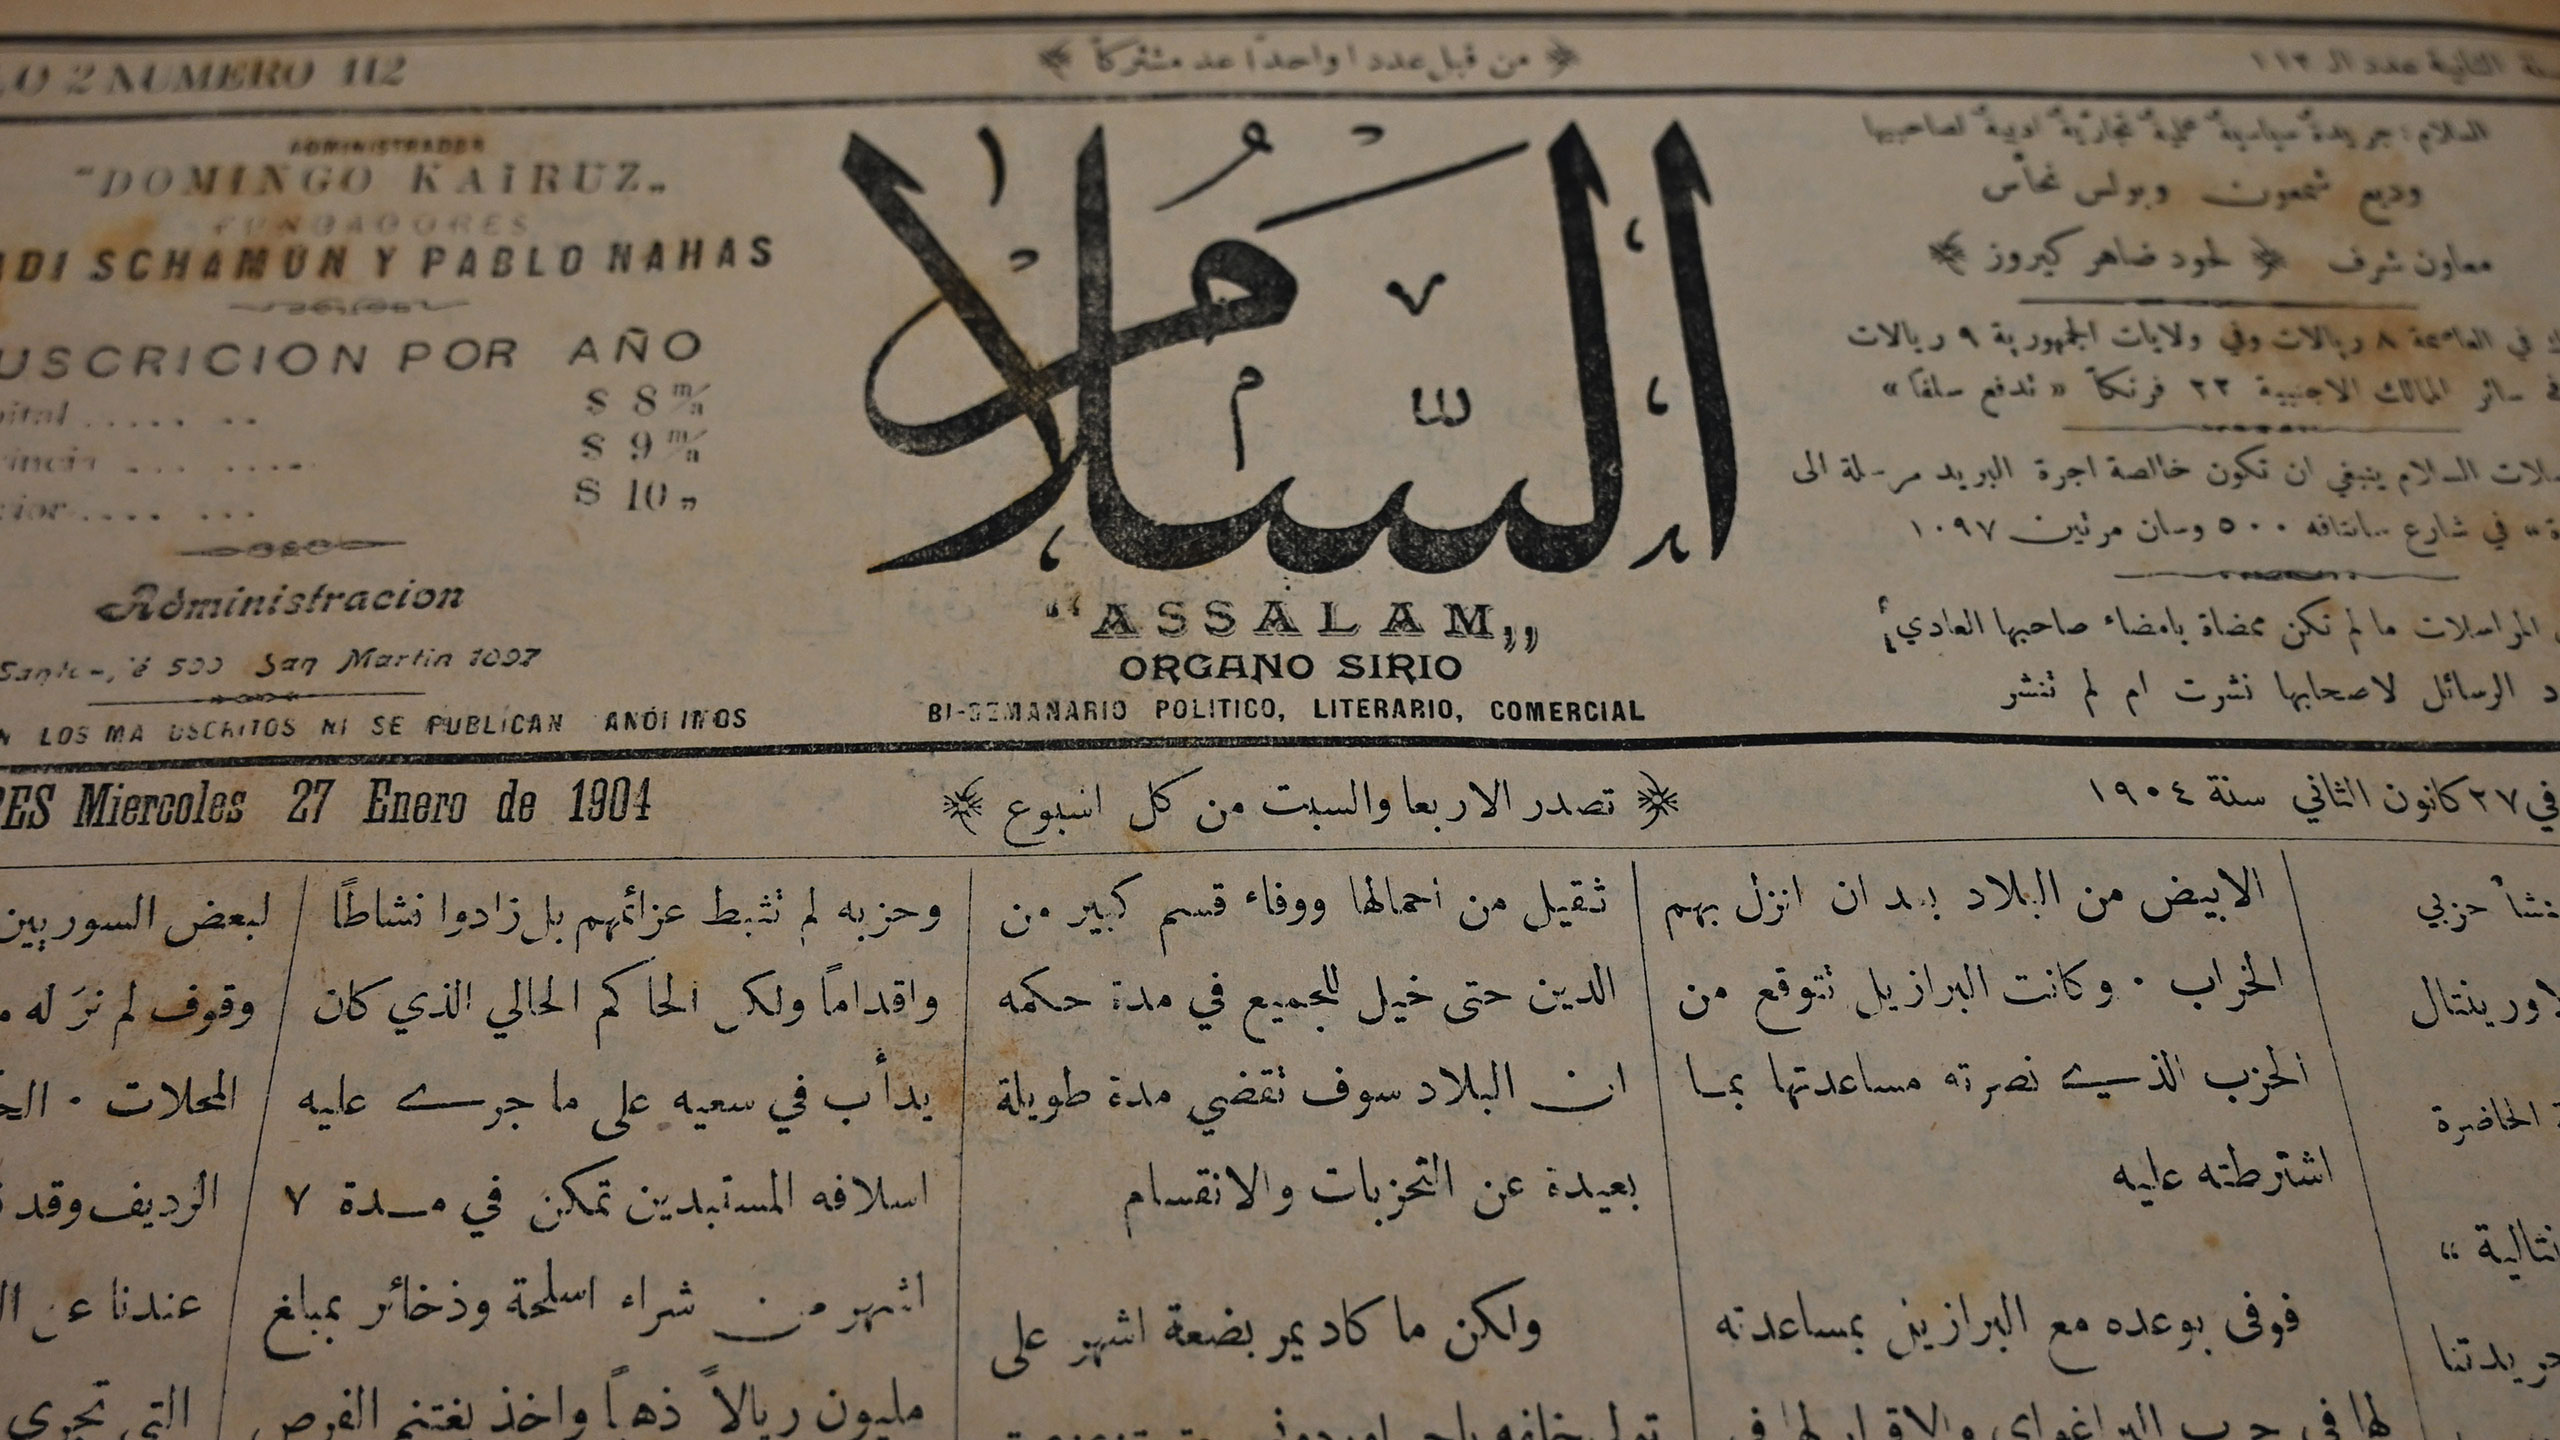 NUMERO 112
من قبل عددا واحدًا عد مشتركاً
الثانية عدد الـ ١١٢
ADMINISTRADOR
"DOMINGO KAIRUZ„
FUNDADORES
SCHAMUN Y PABLO NAHAS
POR AÑO
$ 8 m/n
$ 9 m/n
$ 10 „
Administracion
San Martin 1097
LOS MA USCRITOS NI SE PUBLICAN
السلام
"ASSALAM„
ORGANO SIRIO
BI-SEMANARIO POLITICO, LITERARIO, COMERCIAL
السلام: جريدة سياسية علمية تجارية ادبية لصاحبيها
وديع شمعون وبولس نحاس
معاون شرف لحود ضاهر كيروز
في العاصمة ٨ ريالات وفي ولايات الجمهورية ٩ ريالات
سائر الممالك الاجنبية ٢٢ فرنكاً «تدفع سلفاً»
السلام ينبغي ان تكون خالصة اجرة البريد مرسلة الى
في شارع سانتافه ٥٠٠ وسان مرتين ١٠٩٧
المراسلات ما لم تكن ممضاة بامضاء صاحبها العادي
الرسائل لاصحابها نشرت ام لم تنشر
Miercoles 27 Enero de 1904
تصدر الاربعا والسبت من كل اسبوع
في ٢٧ كانون الثاني سنة ١٩٠٤
حزبي
الحاضرة
الابيض من البلاد بعد ان انزل بهم
الخراب . وكانت البرازيل تتوقع من
الحزب الذي نصرته مساعدتها بما
اشترطته عليه
فوفى بوعده مع البرازيل بمساعدته
لها في حرب البراغواي والاقرار لها في
ثقيل من احمالها ووفاء قسم كبير من
الدين حتى خيل للجميع في مدة حكمه
ان البلاد سوف تقضي مدة طويلة
بعيدة عن التحزبات والانقسام
ولكن ما كاد يمر بضعة اشهر على
وحزبه لم تثبط عزائمهم بل زادوا نشاطًا
واقداماً ولكن الحاكم الحالي الذي كان
يدأب في سعيه على ما جرى عليه
اسلافه المستبدين تمكن في مدة ٧
اشهر من شراء اسلحة وذخائر بمبلغ
مليون ريالاً ذهباً واخذ يغتنم الفرص
لبعض السوريين
وقوف لم نرَ له
المحلات .
الرديف وقد
عندنا عن
التي تجري